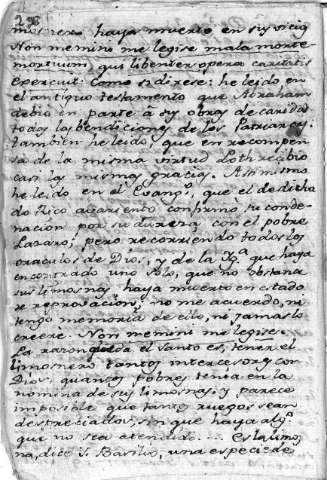 298
mosnero haya muerto en su vicio
Non memini me legise mala morte
mortuum, qui libenter opera caritatis
exercuit. Como si dixese: he leido en
el antiguo testamento que Abraham
debio en parte a su obras de caridad
todas las bendiciones de los Patriarcas.
tambien he leido, que en recompen
sa de la misma virtud Loth recibio
casi las mismas gracias. Asi mismo
he leido en el Evangº, que el desdicha
do Rico avariento confirmó su conde-
nacion por su dureza con el pobre
Lazaro; pero recorriendo todos los
oraculos de Dios, y de la Ygª que haya
encontrado uno solo, que no obstante
sus limosnas haya muerto en estado
de reprovacion, no me acuerdo, ni
tengo memoria de ello, ni jamas lo
creeré. Non memini me legise.
La razon que da el Santo es, tener el
limosnero tantos intercesores con
Dios, quantos pobres tenia en la
nomina de sus limosnas; y parece
imposible que tantos ruegos sean
despreciados, sin que haya algº
que no sea atendido... Es la limos
na, dice S. Basilio, una especie de